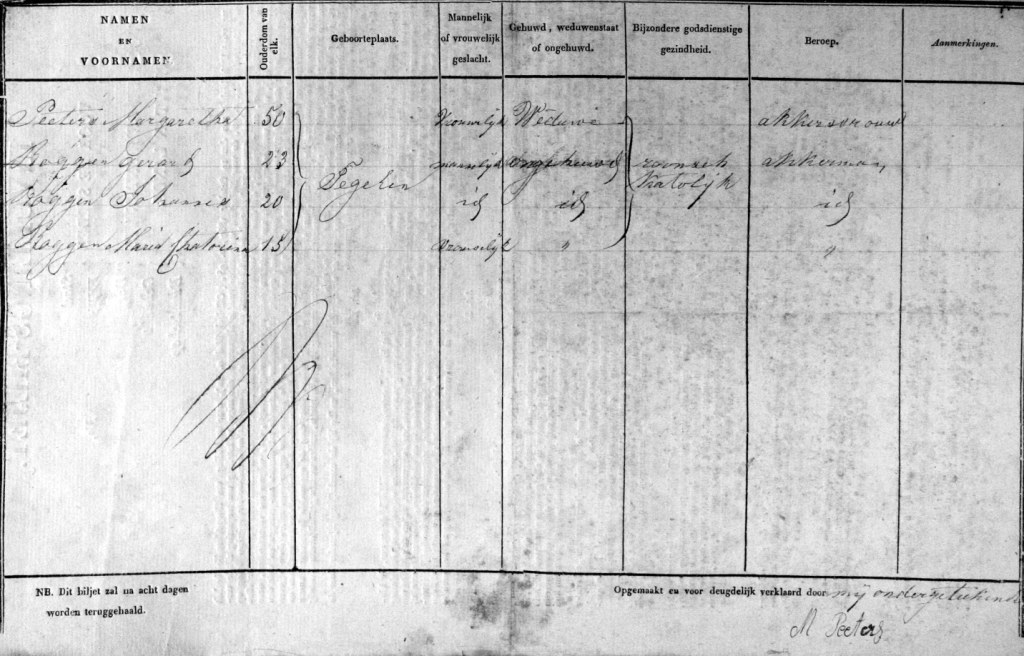 NAMEN EN VOORNAMEN
Ouderdom van elk.
Geboorteplaats.
Mannelijk of vrouwelijk geslacht.
Gehuwd, weduwenstaat of ongehuwd.
Bijzondere godsdienstige gezindheid.
Beroep.
Aanmerkingen.
Peeters Margaretha 50 Vrouwelijk Weduwe akkersvrouw
Roggen Gerard 23 manelijk ongehuwd roomsch akkerman
Tegelen Katolijk
Roggen Johannes 20 id id id
Roggen Maria Chatorina 15 vrouwelijk " "
NB. Dit biljet zal na acht dagen
worden teruggehaald.
Opgemaakt en voor deugdelijk verklaard door mij ondergetiekende
M Peeters